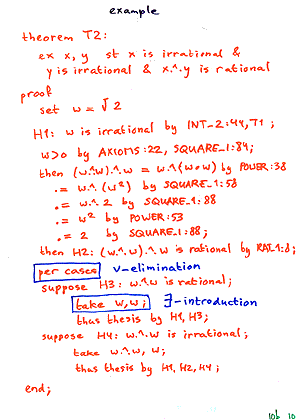 example
theorem T2:
ex x, y st x is irrational &
y is irrational & x.^.y is rational
proof
set w = √2
H1: w is irrational by INT_2:44, T1;
w>0 by AXIOMS:22, SQUARE_1:84;
then (w.^.w).^.w = w.^.(w•w) by POWER:38
.= w.^.(w²) by SQUARE_1:58
.= w.^.2 by SQUARE_1:88
.= w² by POWER:53
.= 2 by SQUARE_1:88;
then H2: (w.^.w).^.w is rational by RAT_1:8;
per cases v-elimination
suppose H3: w.^.w is rational;
take w, w; ∃-introduction
thus thesis by H1, H3;
suppose H4: w.^.w is irrational;
take w.^.w, w;
thus thesis by H1, H2, H4;
end;